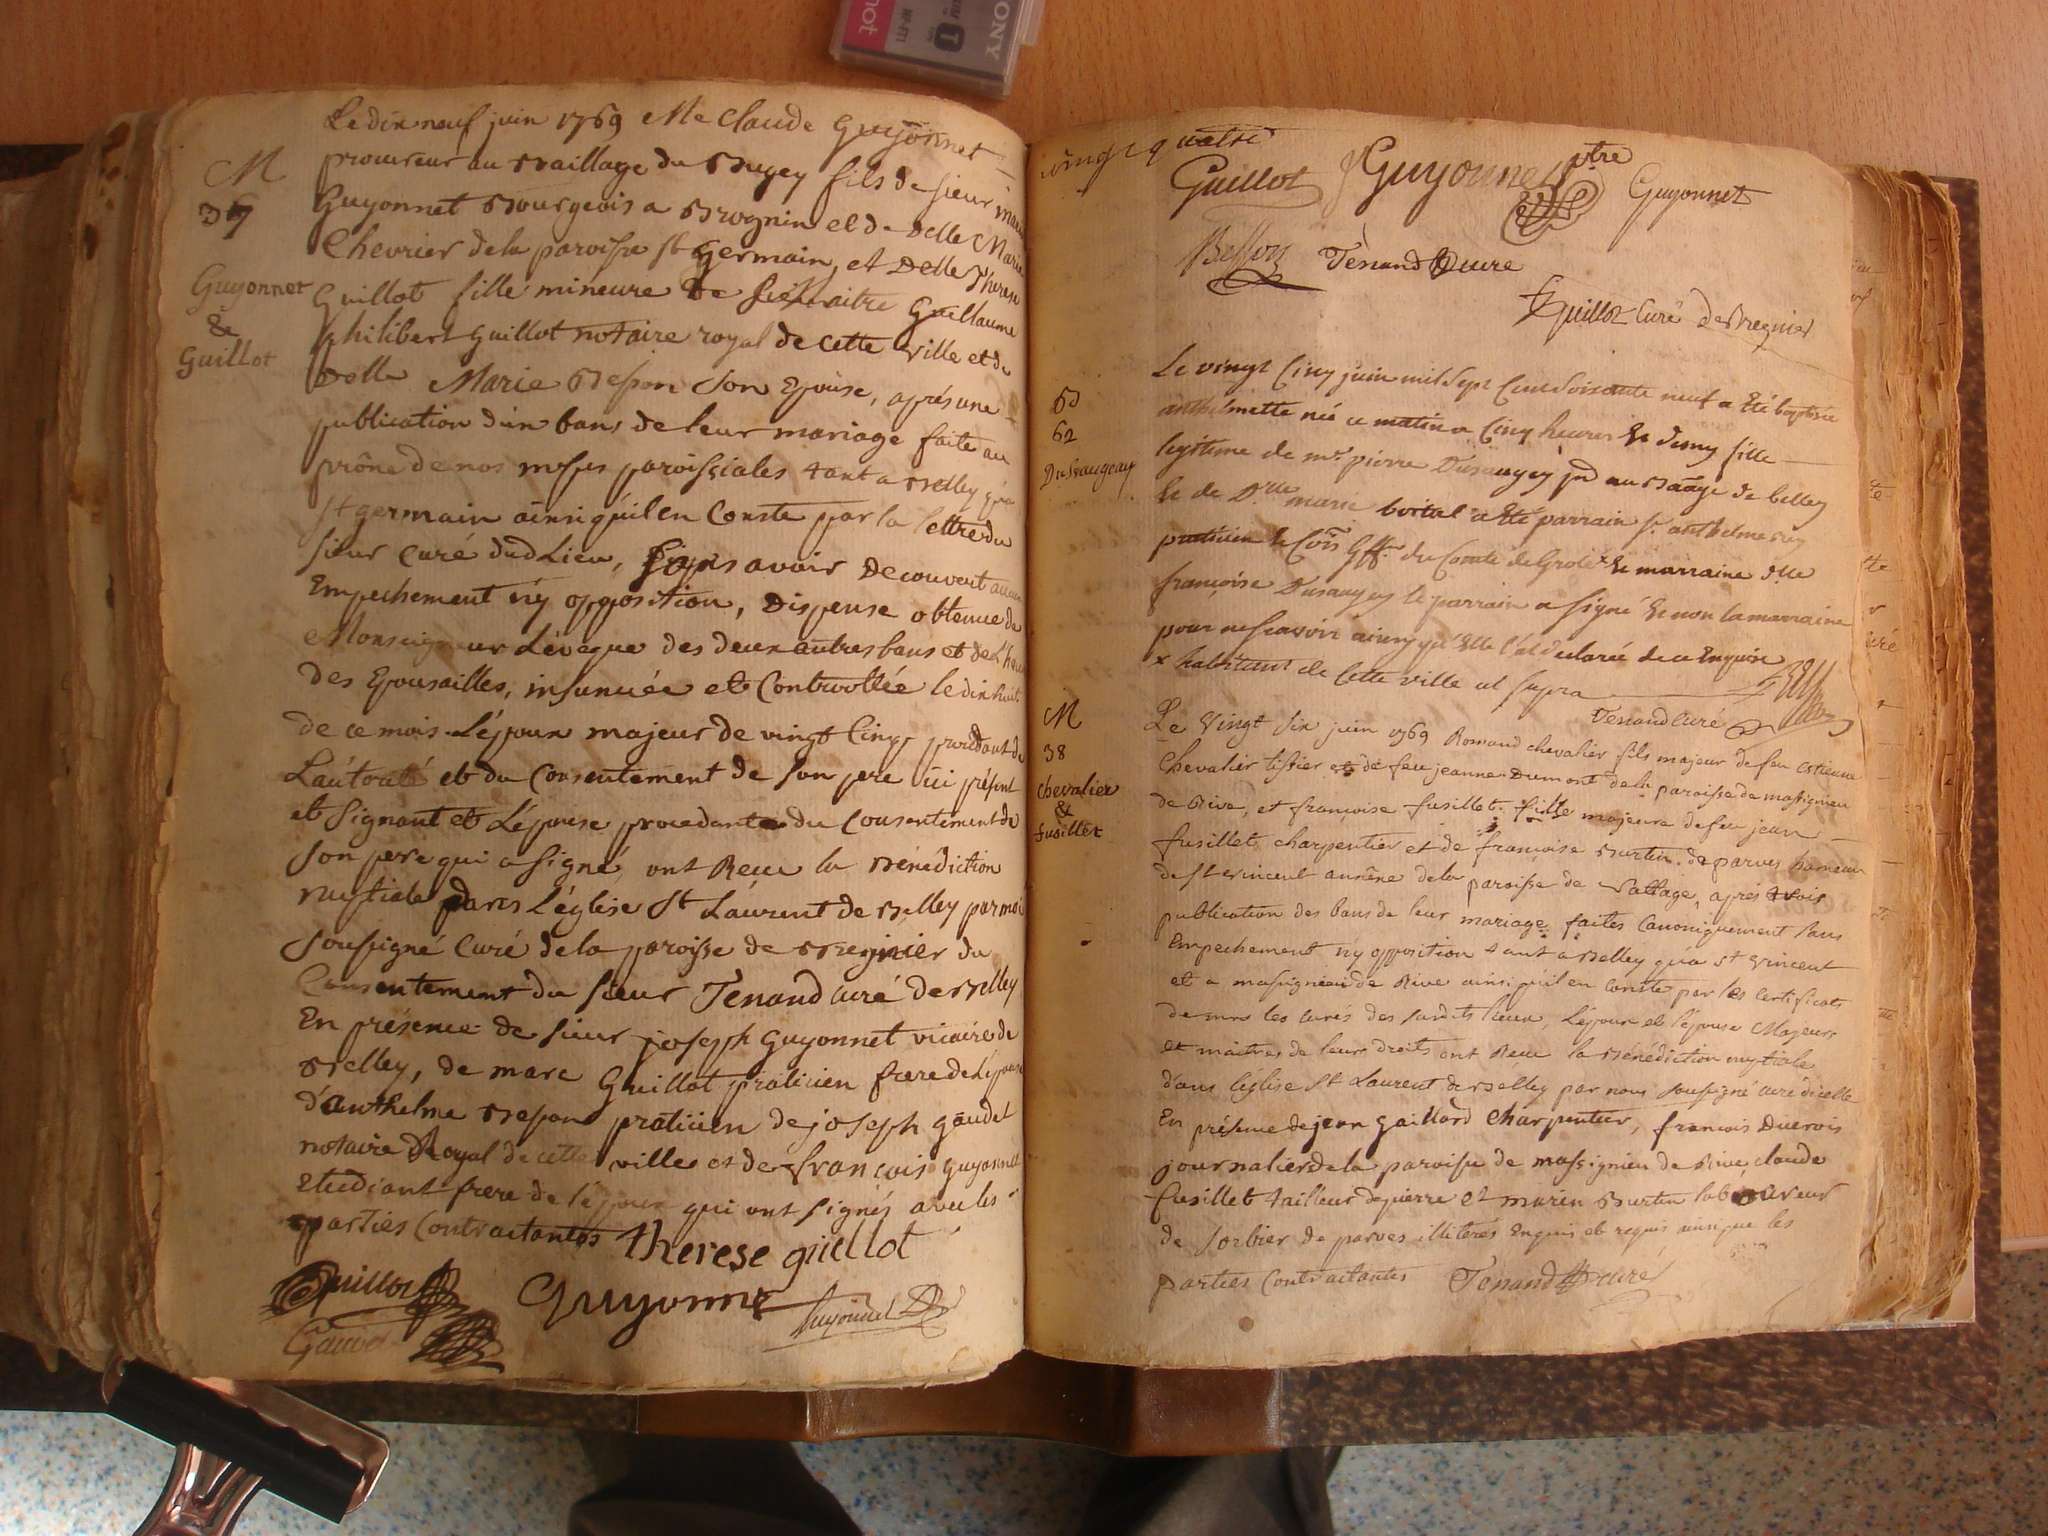 SONY
M
37
Guyonnet
&
Guillot
Le dix neuf juin 1769 Me Claude Guyonnet
procureur au Baillage du Bugey fils de sieur
Guyonnet Bourgeois a Brognin et de Delle Marie
Chevrier de la paroisse St Germain, et Delle Therese
Guillot fille mineure De Guillaume
philibert Guillot notaire royal de cette ville et de
Delle Marie Besson son Epouse, aprés une
publication d'un bans de leur mariage faite au
prône de nos messes paroissiales tant a Belley qu'a
St germain ainsi qu'il en Conste par la lettre du
sieur Curé dud Lieu, sans avoir Decouvert aucun
Empechement n'y opposition, Dispense obtenue de
Monseigneur L'évêque des deux autres bans et de L'heure
des Epousailles, insinuée et Controllée le dix huit
de ce mois. L'époux majeur de vingt Cinq procedant de
L'autorité et du Consentement de son pere ici présent
et signant et L'épouse procedante du Consentement de
son pere qui a signé, ont Reçu la Bénédiction
nuptiale dans L'église St Laurent de Belley par moi
soussigné Curé de la paroisse de Bregnier du
Consentement du sieur Tenand curé de Belley
En présence de sieur joseph Guyonnet vicaire de
Belley, de marc Guillot praticien frere de L'épouse
d'anthelme Besson praticien de joseph gaudet
notaire Royal de cette ville et de françois guyonnet
Etudiant frere de l'époux qui ont signés avec les
parties Contractantes therese guillot
Guillot Guyonnet Guyonnet
vingt quatre
Guillot J Guyonnet ptre Guyonnet
Besson Tenand Curé
Guillot Curé de Bregnier
62
Dusaugey
Le vingt Cinq juin mil Sept Cent Soixante neuf a Eté baptisée
anthelmette née ce matin a Cinq heures & demy fille
legitime de mr pierre Dusaugey au de belley
& de Dlle marie bortal a Eté parrain sr anthelme
praticien & du Comté de Grolé x & marraine Dlle
françoise Dusaugey le parrain a signé & non la marraine
pour ne scavoir ainsy qu'Elle l'a declarée de ce Enquise
x habitant de Cette ville ut supra
Tenand Curé
M
38
Chevalier
&
fusillet
Le Vingt six juin 1769 Romand chevalier fils majeur de feu Estienne
Chevalier tissier et de feu jeanne Dumont de la paroisse de massignieu
de Rive, et françoise fusillet fille majeure de feu jean
fusillet charpentier et de françoise Burtin de parves hameau
de St vincent annêxe de la paroisse de aprés trois
publication des bans de leur mariage faites Canoniquement sans
Empechement n'y opposition tant a Belley qu'a St vincent
et a massignieu de Rive ainsi qu'il en Conste par les Certificats
de mrs les curés des susdits lieux, L'époux et l'épouse Majeurs
et maitres de leurs droits ont Reçu la Bénédiction nuptiale
dans l'église St Laurent de Belley par nous soussigné curé d'icelle
En présence de jean gaillard Charpentier, francois
journalier de la paroisse de massignieu de Rive, claude
fusillet tailleur de pierre et marin Burtin laboureur
de sorbier de parves illiteres Enquis et requis ainsi que les
parties Contractantes Tenand curé